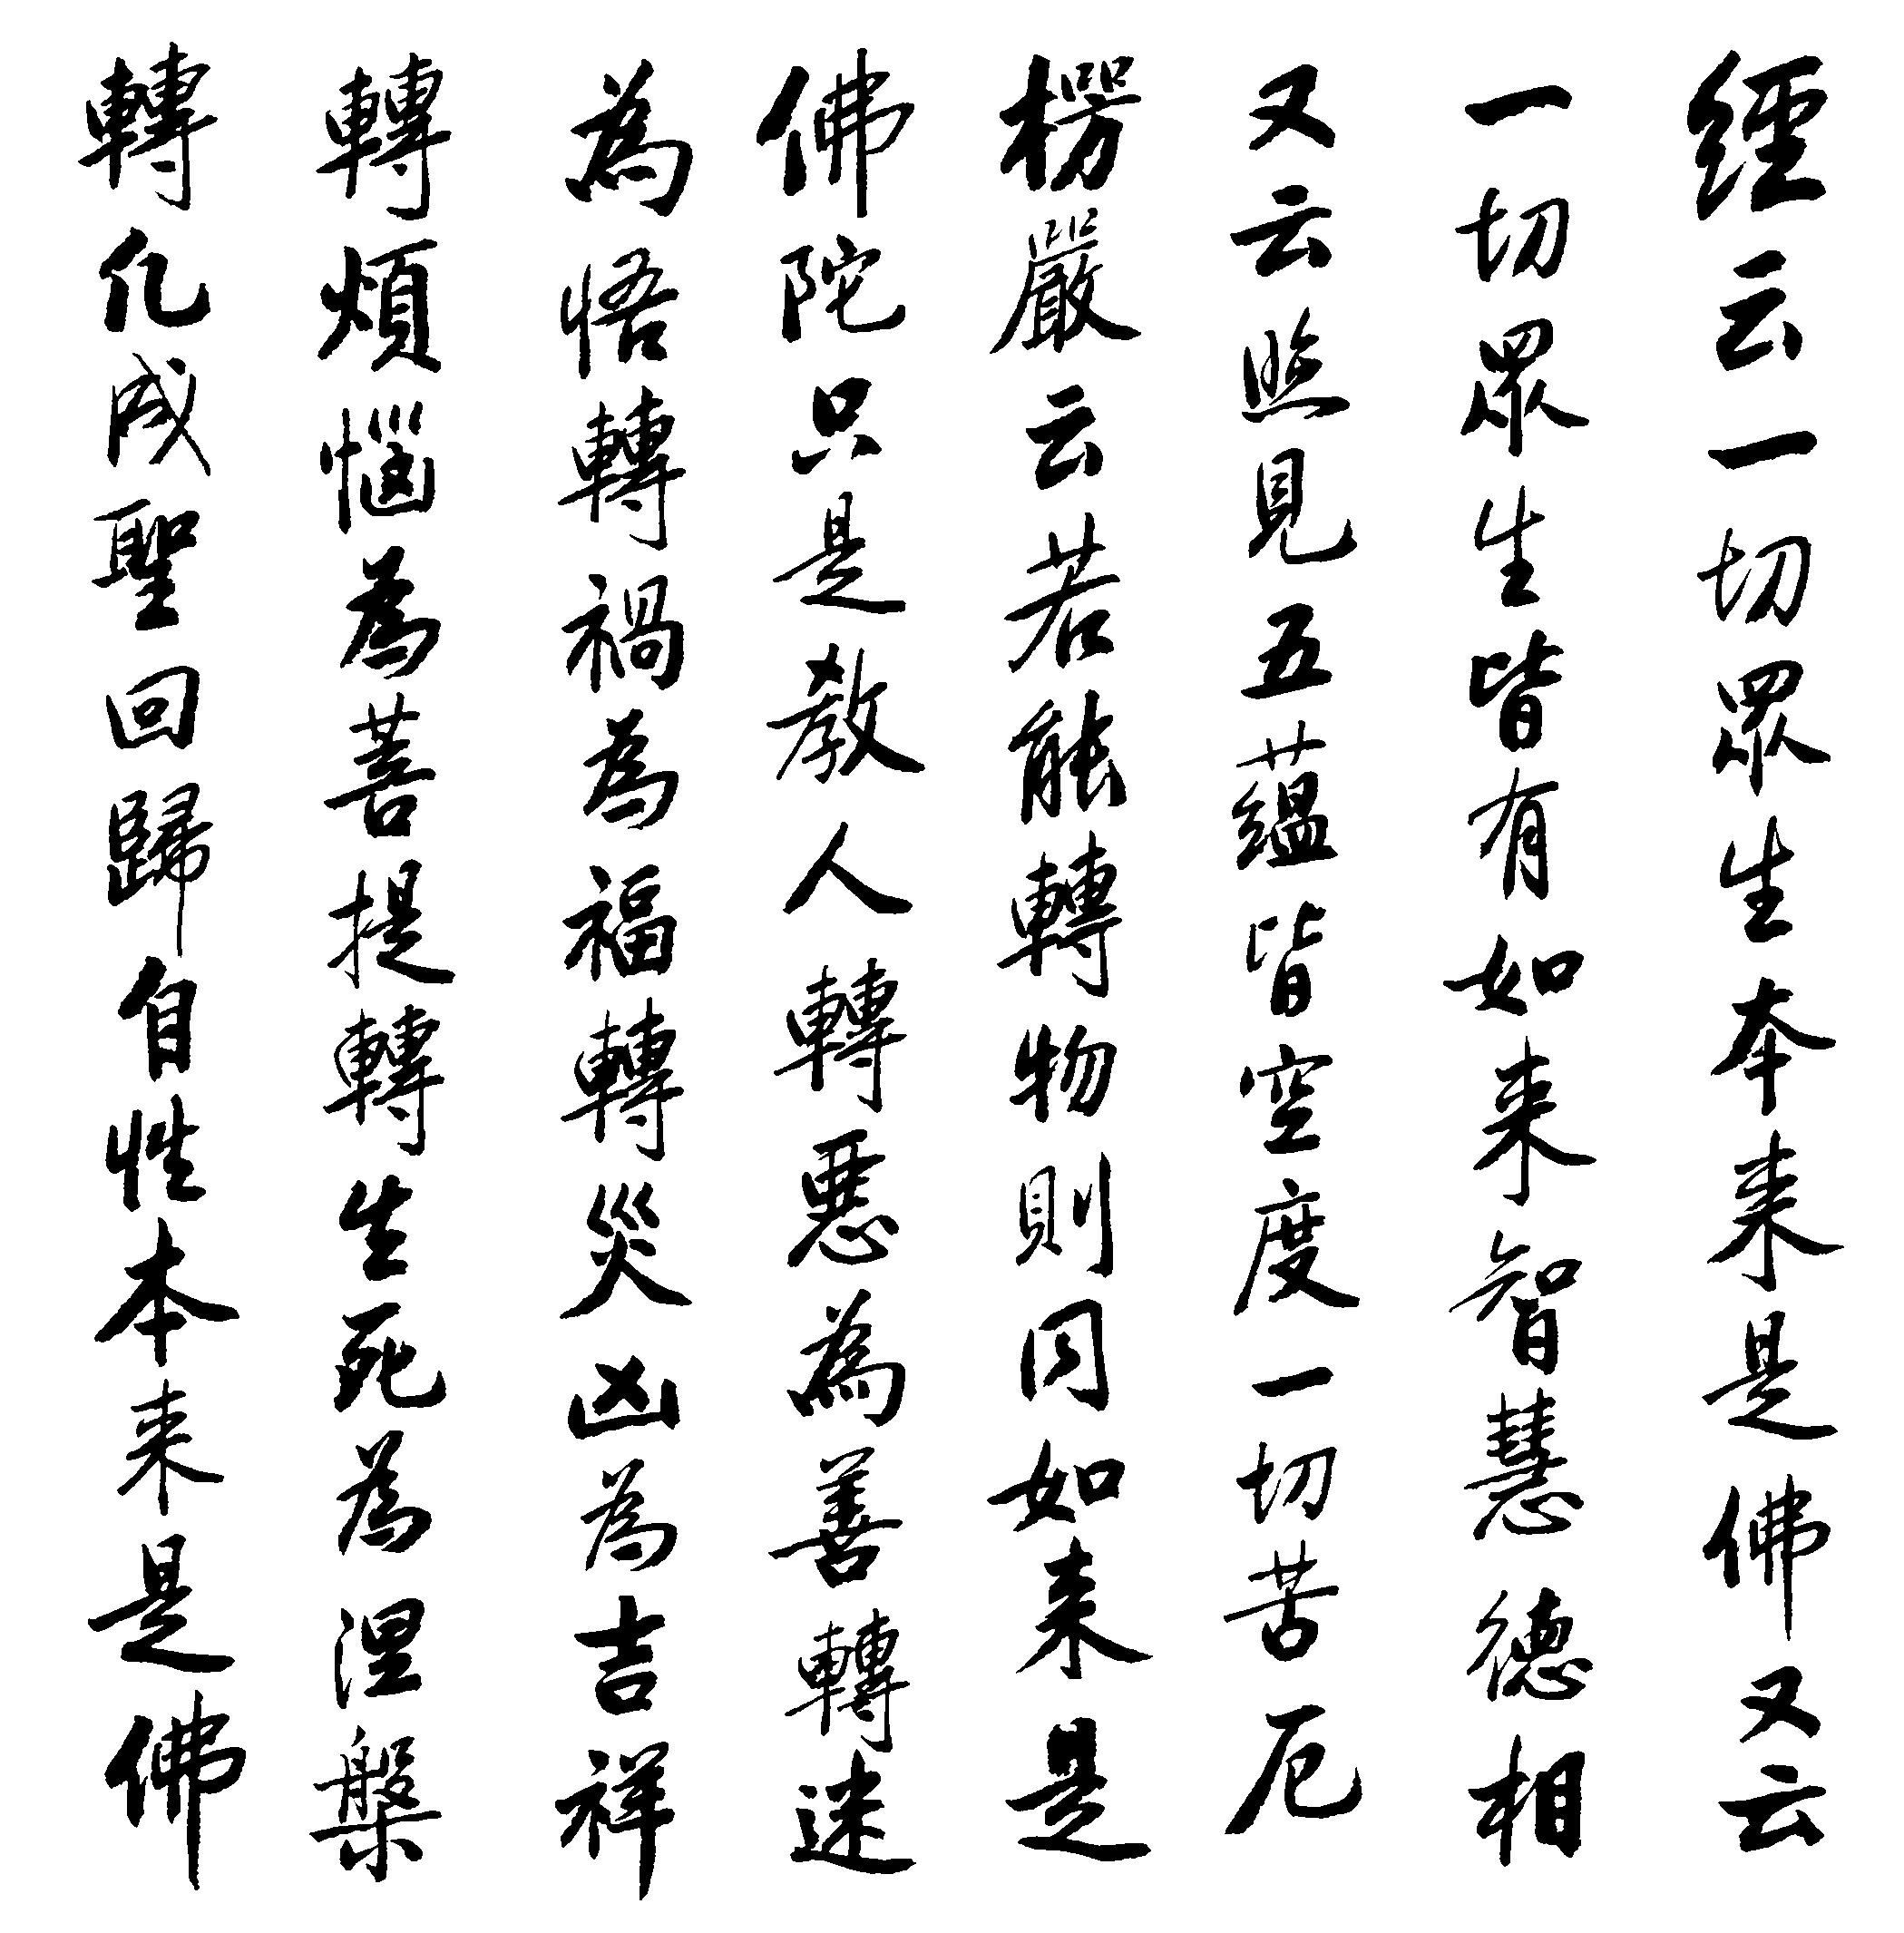 經云一切眾生本来是佛又云
一切眾生皆有如来智慧德相
又云照見五蘊皆空度一切苦厄
楞嚴云若能轉物則同如来是
佛陀只是教人轉惡為善轉迷
為悟轉禍為福轉災凶為吉祥
轉煩惱為菩提轉生死為涅槃
轉凡成聖回歸自性本来是佛